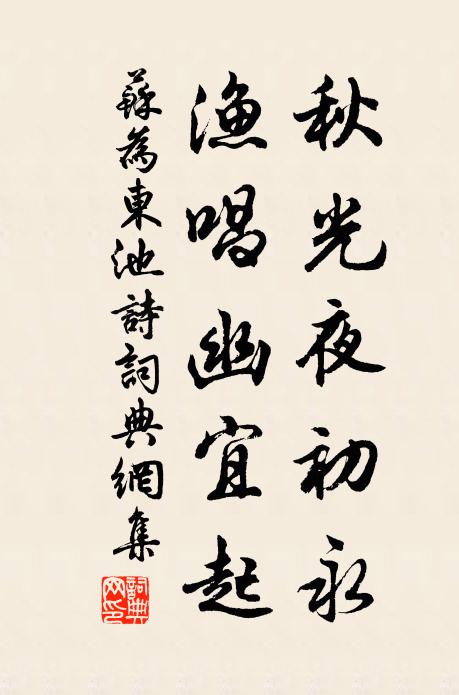 秋光夜初永
漁唱幽宜起
蘇為東池詩詞典網集
詞典網印